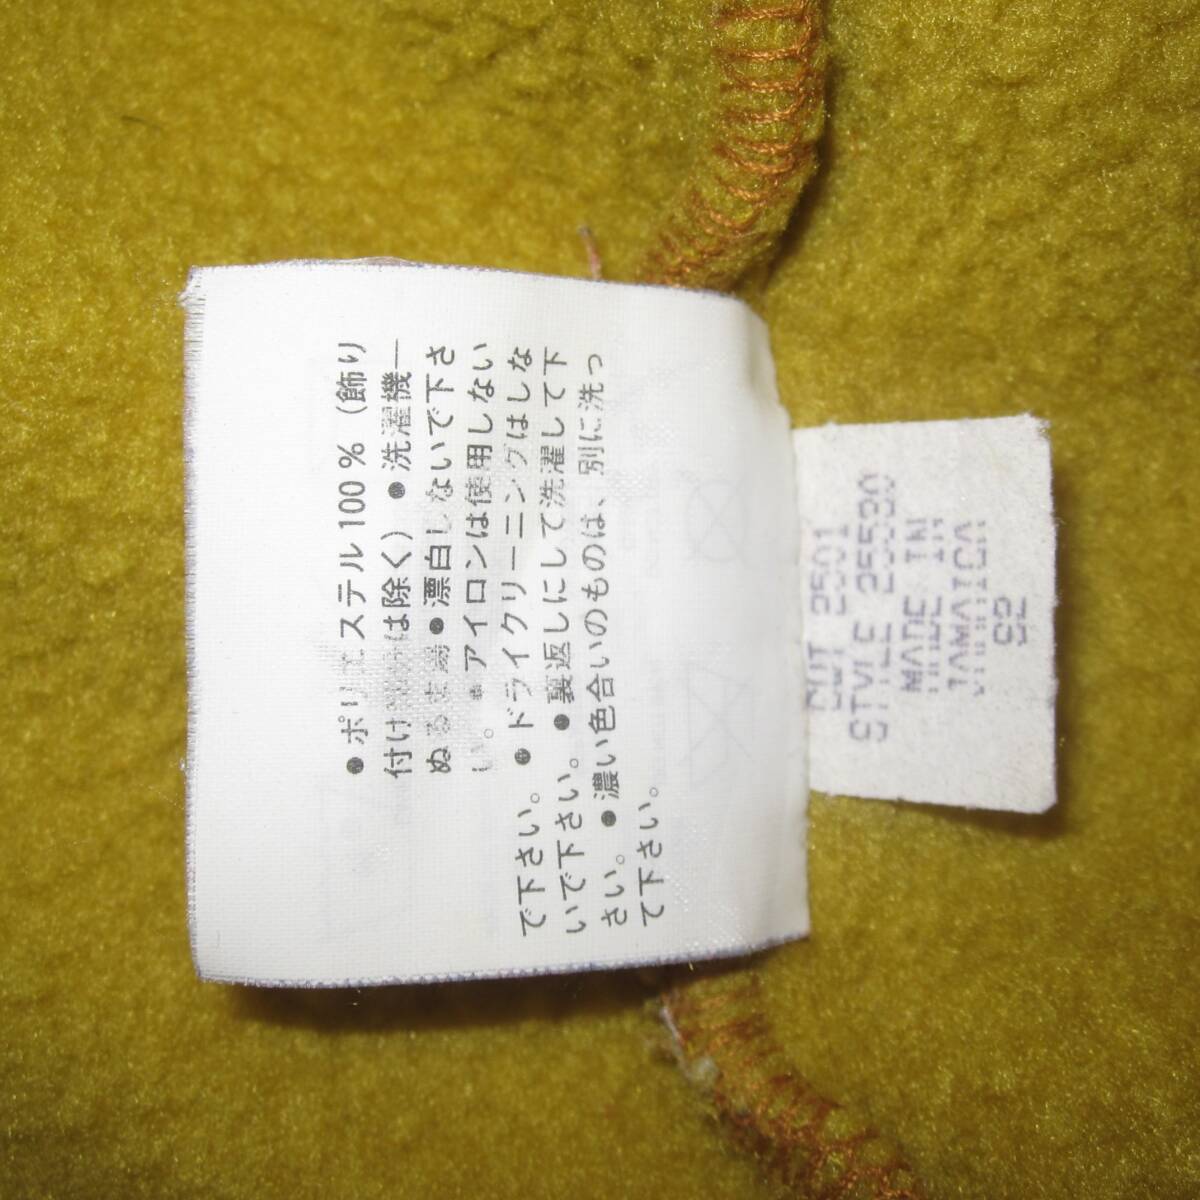 ●ポリエステル100%（飾り
付けは除く）●洗濯機—
ぬるま湯●漂白しないで下さ
い。●アイロンは使用しない
で下さい。●ドライクリーニングはしな
いで下さい。●裏返しにして洗濯して下
さい。●濃い色合いのものは、別に洗っ
て下さい。
CUT 2501
STYLE
MADE IN
JAMAICA